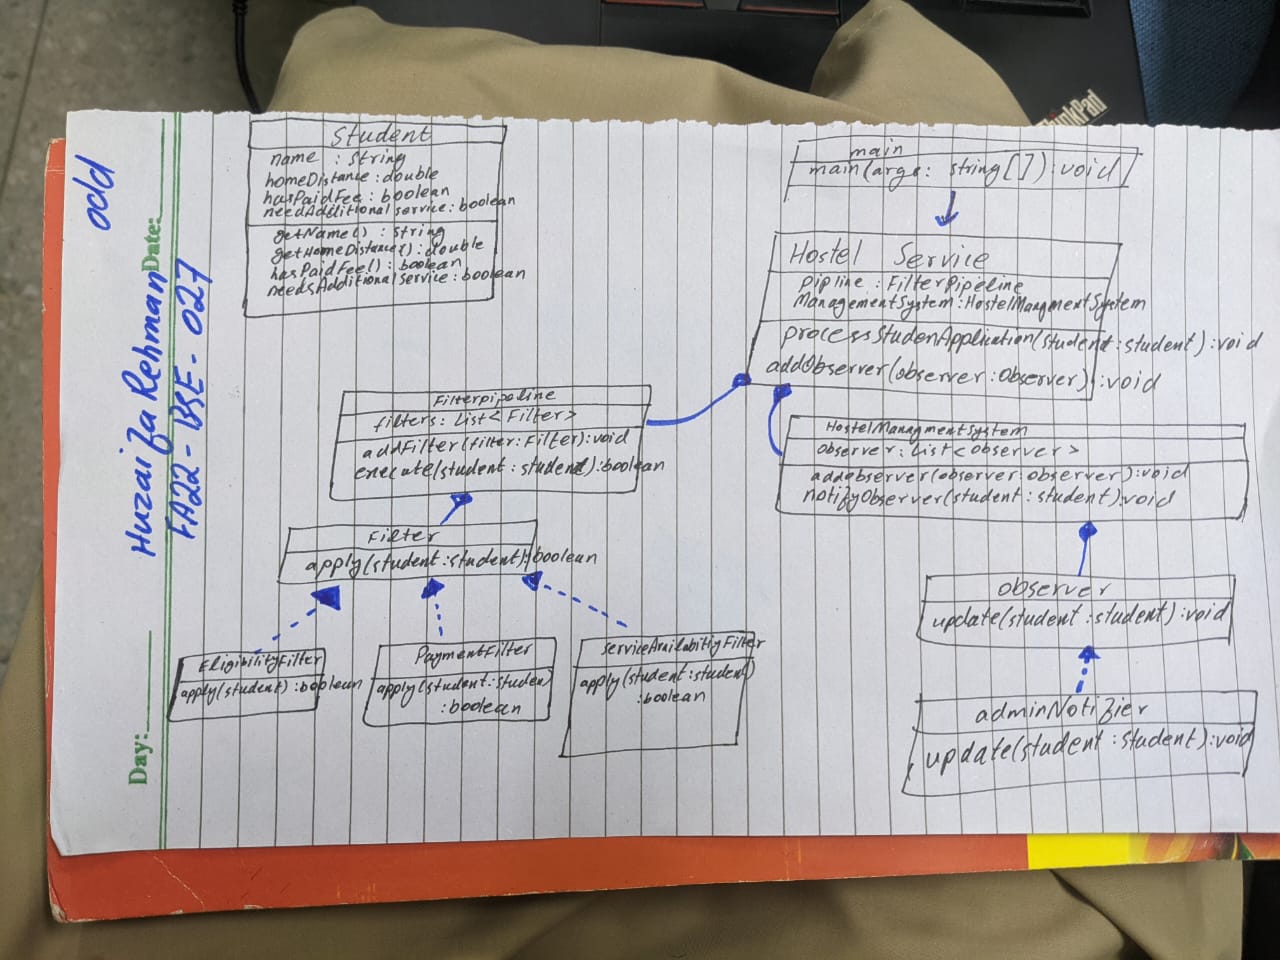 ThinkPad
odd
Date:
Huzaifa Rehman
FA22-BSE-027
Day:
Student
name : String
homeDistance : double
hasPaidFee : boolean
needAdditional service : boolean
getName() : String
getHomeDistance() : double
hasPaidFee() : boolean
needsAdditional service : boolean
main
main(args: string[]) : void
Hostel Service
pipline : FilterPipeline
ManagementSystem : HostelManagmentSystem
processStudenApplication(student : student) : void
addObserver(observer : Observer) : void
Filterpipeline
filters : List<Filter>
addFilter(filter: Filter) : void
execute(student : student) : boolean
HostelManagmentSystem
observer : List<observer>
addobserver(observer : observer) : void
notifyObserver(student : student) : void
Filter
apply(student : student) : boolean
observer
update(student : student) : void
EligibilityFilter
apply(student) : boolean
PaymentFilter
apply(student : studen)
: boolean
apply(student : student)
: boolean
adminNotifier
update(student : student) : void